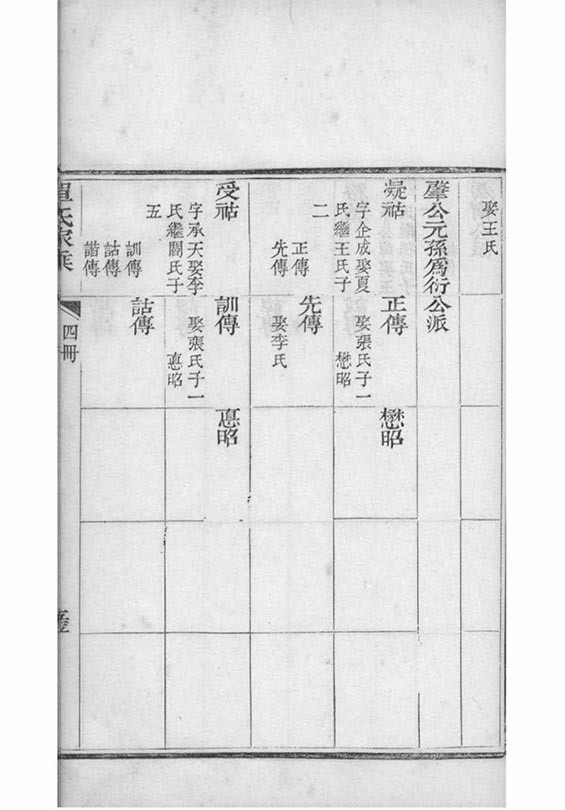 娶王氏
肇公元孫爲衍公派
凝祜
字企成娶夏
氏繼王氏子
二
正傳
先傳
正傳
娶張氏子一
懋昭
懋昭
先傳
娶李氏
受祜
字承天娶李
氏繼關氏子
五
訓傳
詁傳
諧傳
訓傳
娶張氏子一
惪昭
惪昭
詁傳
四冊